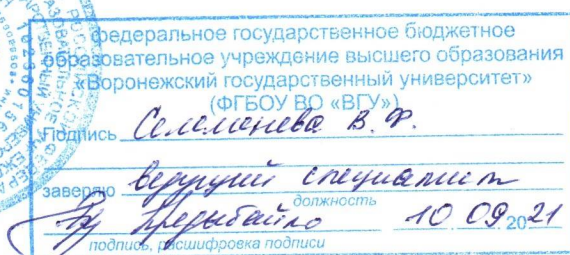 федеральное государственное бюджетное
образовательное учреждение высшего образования
«Воронежский государственный университет»
(ФГБОУ ВО «ВГУ»)
Подпись Селеменева В. Ф.
заверяю ведущий специалист
должность
10 09 2021
подпись, расшифровка подписи